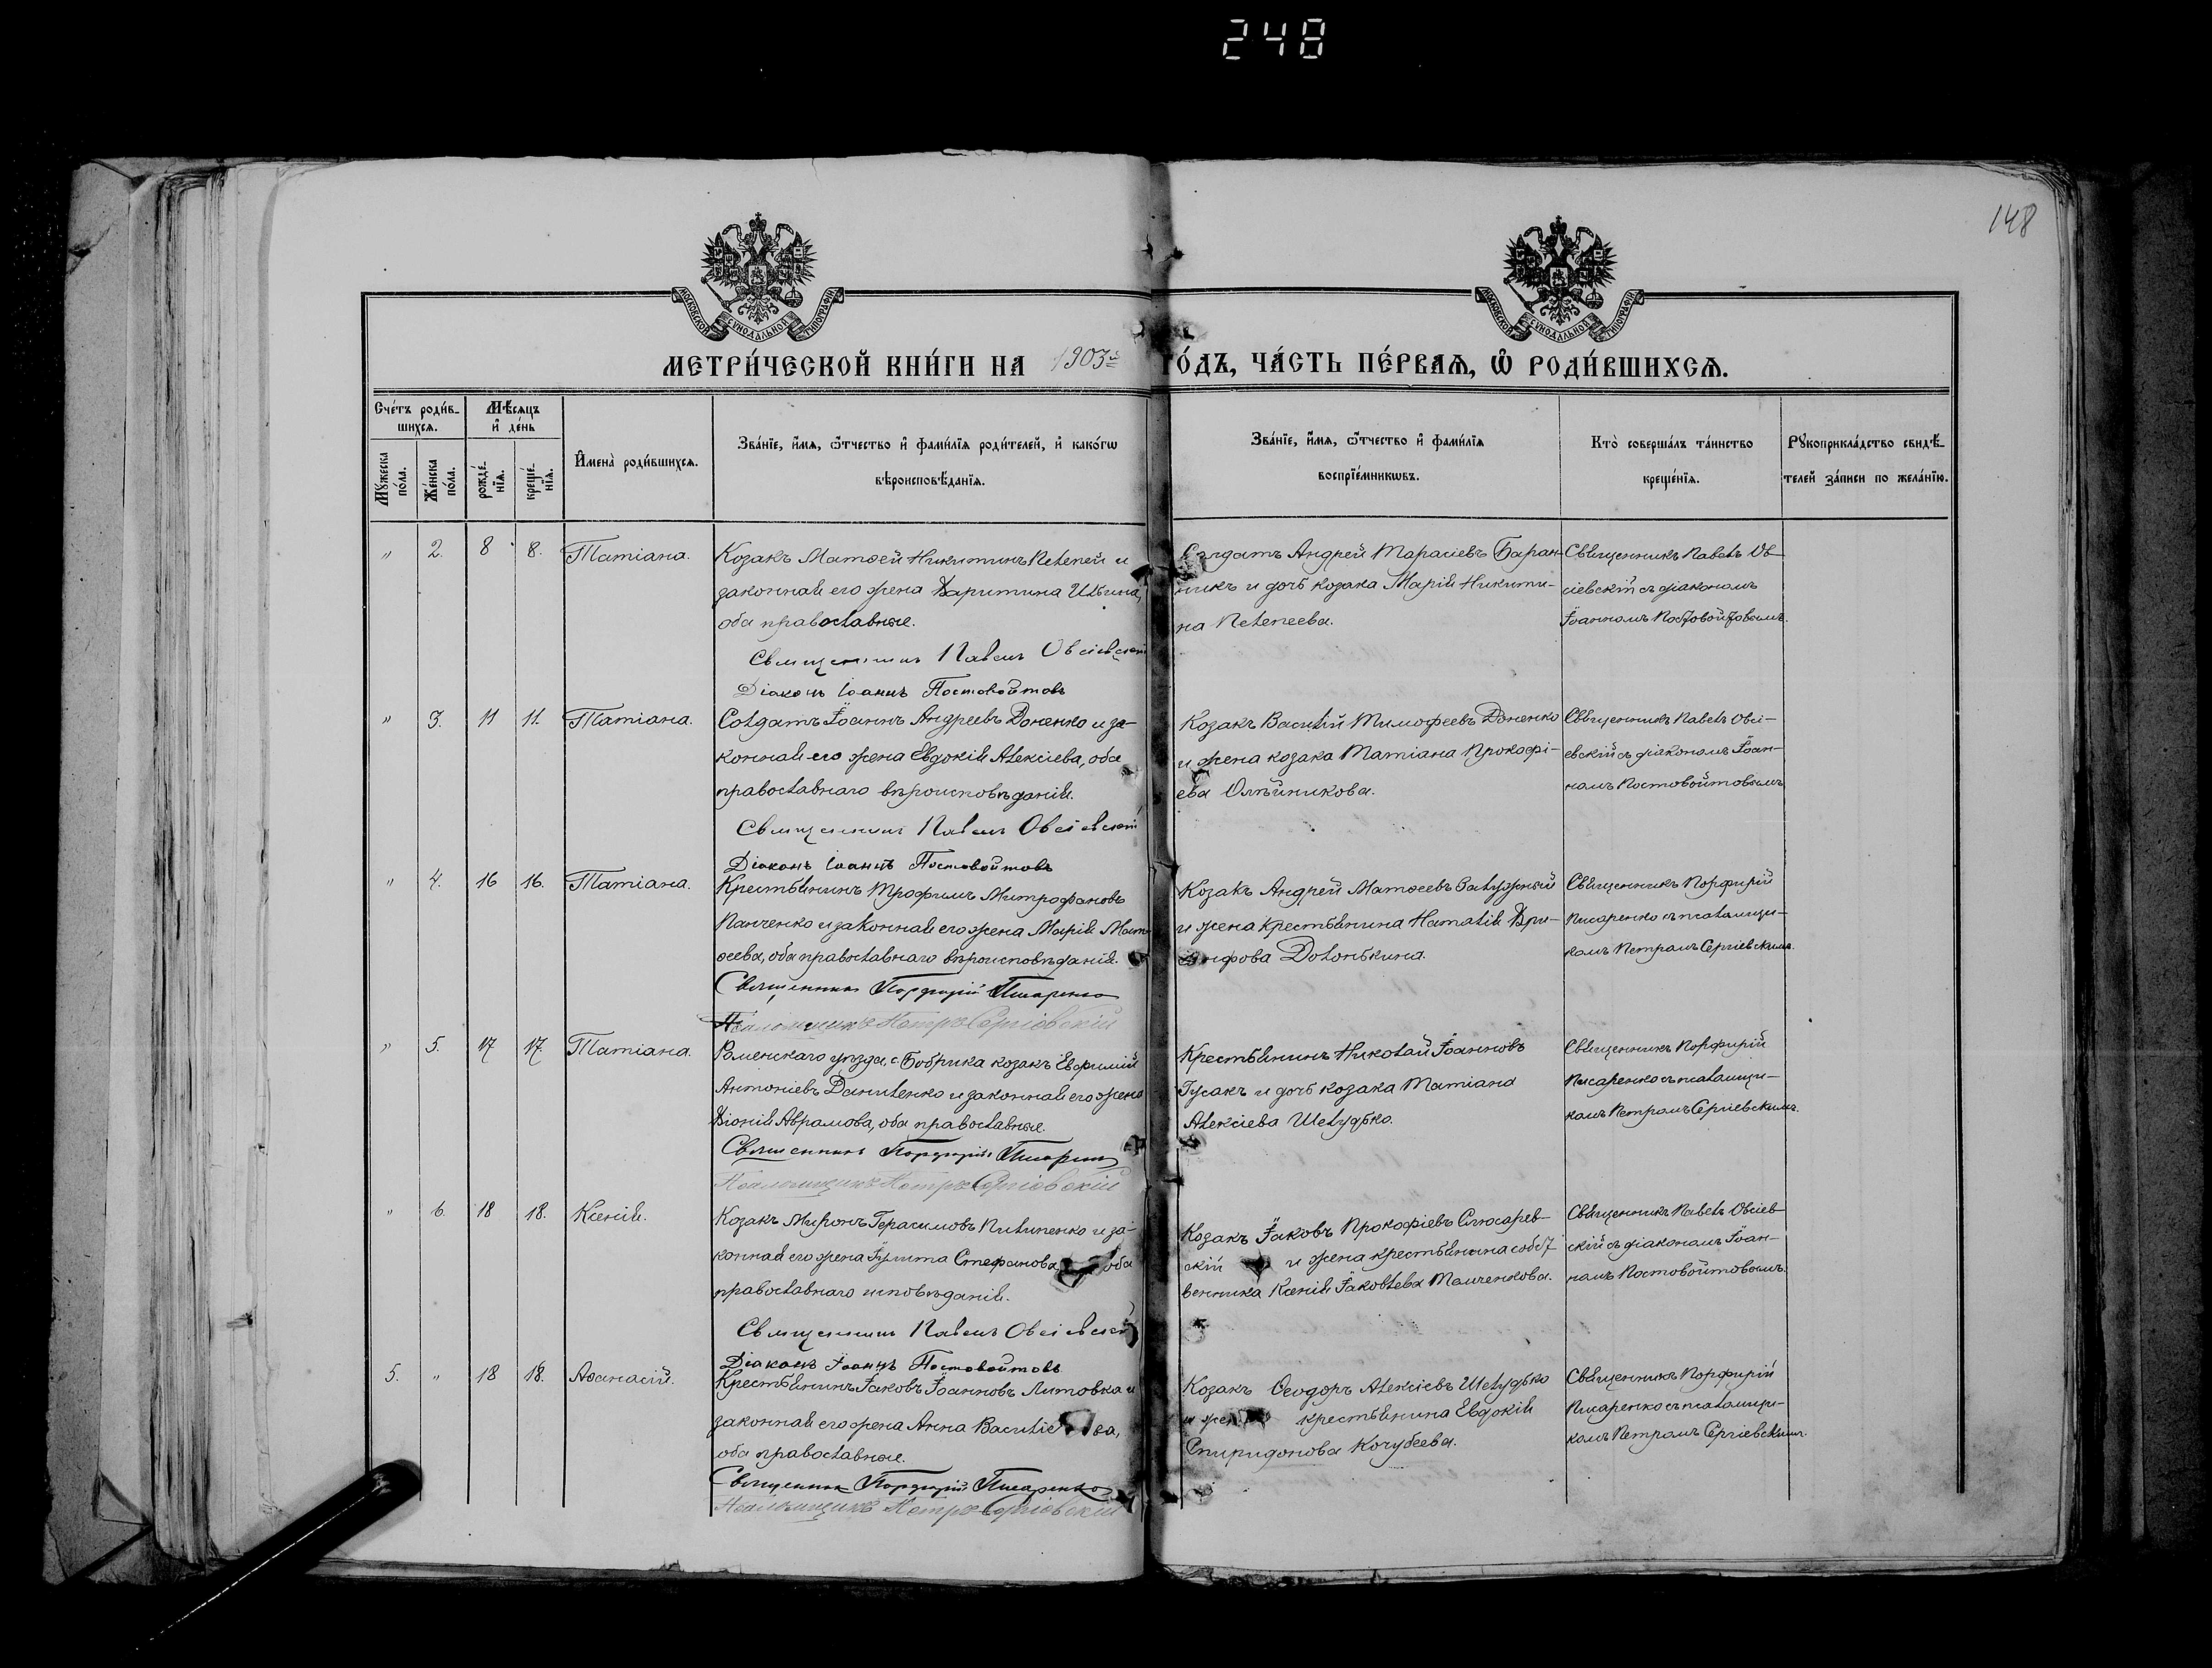 248
148
МОСКОВСКОЙ СУНОДАЛЬНОЙ ТИПОГРАФІИ
МОСКОВСКОЙ СУНОДАЛЬНОЙ ТИПОГРАФІИ
МЕТРИ́ЧЕСКОЙ КНИ́ГИ НА 1903й ГО́ДЪ, ЧА́СТЬ ПЕ́РВАѦ, Ѡ҆ РОДИ́ВШИХСѦ.
Сче́тъ роди́в-
шихсѧ.
Мѣ́сѧцъ
и҆ де́нь
Мꙋ́жеска
по́ла.
Же́нска
по́ла.
рожде́-
нїѧ.
креще́-
нїѧ.
И҆мена̀ роди́вшихсѧ.
Зва́нїе, и҆́мѧ, ѻ҆́тчество и҆ фами́лїѧ роди́телей, и҆ како́гѡ
вѣроисповѣ́данїѧ.
Зва́нїе, и҆́мѧ, ѻ҆́тчество и҆ фами́лїѧ
воспрїе́мникѡвъ.
Кто̀ соверша́лъ та́инство
креще́нїѧ.
Рꙋкоприкла́дство свидѣ́-
телей за́писи по жела́нїю.
" 2. 8 8. Татіана.
Козакъ Матѳей Никитинъ Пелепей и
законная его жена Харитина Ильина,
оба православные.
Священникъ Павелъ Овсіевскій
Діаконъ Іоаннъ Постовойтовъ
Солдатъ Андрей Тарасіевъ Баран-
никъ и дочь козака Марія Никити-
на Пелепеева.
Священникъ Павелъ Ов-
сіевскій съ діакономъ
Іоанномъ Постовойтовымъ.
" 3. 11 11. Татіана.
Солдатъ Іоаннъ Андреевъ Доненко и за-
конная его жена Евдокія Алексіева, оба
православнаго вѣроисповѣданія.
Священникъ Павелъ Овсіевскій
Діаконъ Іоаннъ Постовойтовъ
Козакъ Василій Тимофеевъ Доненко
и жена козака Татіана Прокофі-
ева Олѣйникова.
Священникъ Павелъ Овсі-
евскій съ діакономъ Іоан-
номъ Постовойтовымъ
" 4. 16 16. Татіана.
Крестьянинъ Трофимъ Митрофановъ
Панченко и законная его жена Марія Мат-
ѳеева, оба православнаго вѣроисповѣданія.
Священникъ Порфирій Писаренко
Псаломщикъ Петръ Сергіевскій
Козакъ Андрей Матѳеевъ Залужный
и жена крестьянина Наталія Три-
фова Долонькина.
Священникъ Порфирій
Писаренко съ псаломщи-
комъ Петромъ Сергіевскимъ.
" 5. 17 17. Татіана.
Роменскаго уѣзда, с. Бобрика козакъ Евфимій
Антоніевъ Даниленко и законная его жена
Авраамова, оба православные.
Священникъ Порфирій Писаренко
Псаломщикъ Петръ Сергіевскій
Крестьянинъ Николай Іоанновъ
Гусакъ и дочь козака Татіана
Алексіева Шелудько.
Священникъ Порфирій
Писаренко съ псаломщи-
комъ Петромъ Сергіевскимъ.
" 6. 18 18. Ксенія.
Козакъ Миронъ Герасимовъ Пилипенко и за-
конная его жена Іулита Стефанова, оба
православнаго исповѣданія.
Священникъ Павелъ Овсіевскій
Діаконъ Іоаннъ Постовойтовъ
Козакъ Іаковъ Прокофіевъ Слюсарев-
скій и жена крестьянина собст
венника Ксенія Іаковлева Темченкова.
Священникъ Павелъ Овсіев-
скій съ діакономъ Іоан-
номъ Постовойтовымъ.
5. " 18 18. Аѳанасій.
Крестьянинъ Іаковъ Іоанновъ Литовка и
законная его жена Анна Василіева,
оба православные.
Священникъ Порфирій Писаренко
Псаломщикъ Петръ Сергіевскій
Козакъ Ѳеодоръ Алексіевъ Шелудько
и жена крестьянина Евдокія
Спиридонова Кочубеева.
Священникъ Порфирій
Писаренко съ псаломщи-
комъ Петромъ Сергіевскимъ.